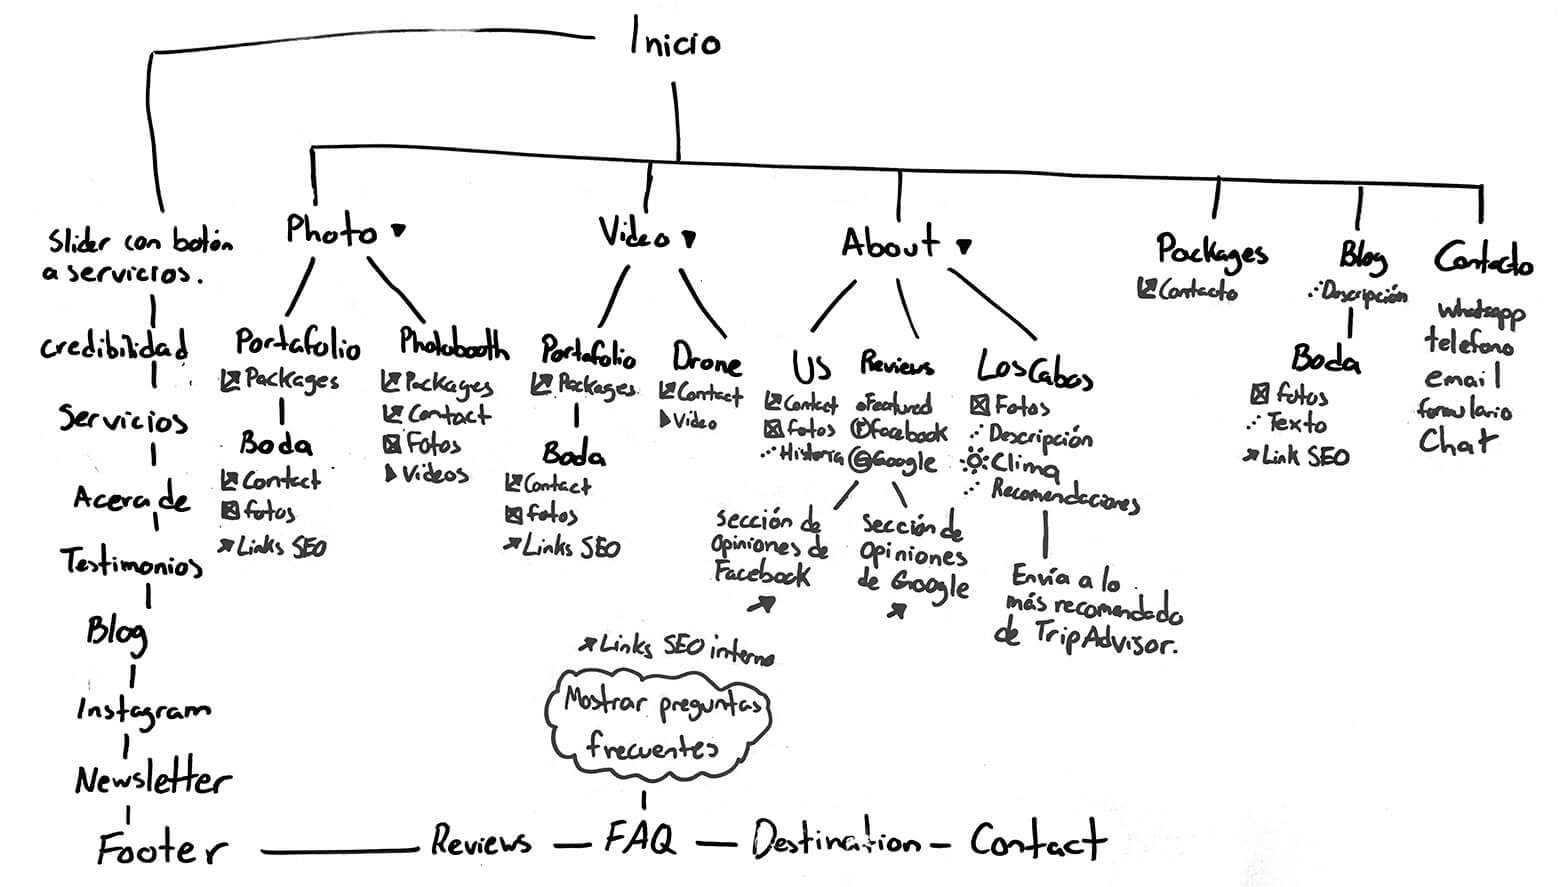 Inicio
Slider con botón
a servicios.
credibilidad
Servicios
Acerca de
Testimonios
Blog
Instagram
Newsletter
Footer
Photo
Portafolio
Packages
Boda
Contact
fotos
Links SEO
Photobooth
Packages
Contact
Fotos
Videos
Video
Portafolio
Packages
Boda
Contact
fotos
Links SEO
Drone
Contact
Video
About
US
Contact
fotos
Historia
Reviews
Featured
facebook
Google
Sección de
Opiniones de
Facebook
Sección de
Opiniones
de Google
Los Cabos
Fotos
Descripción
Clima
Recomendaciones
Envía a lo
más recomendado
de TripAdvisor.
Packages
Contacto
Blog
Descripción
Boda
fotos
Texto
Link SEO
Contacto
Whatsapp
telefono
email
formulario
Chat
Links SEO interno
Mostrar preguntas
frecuentes
Reviews
FAQ
Destination
Contact